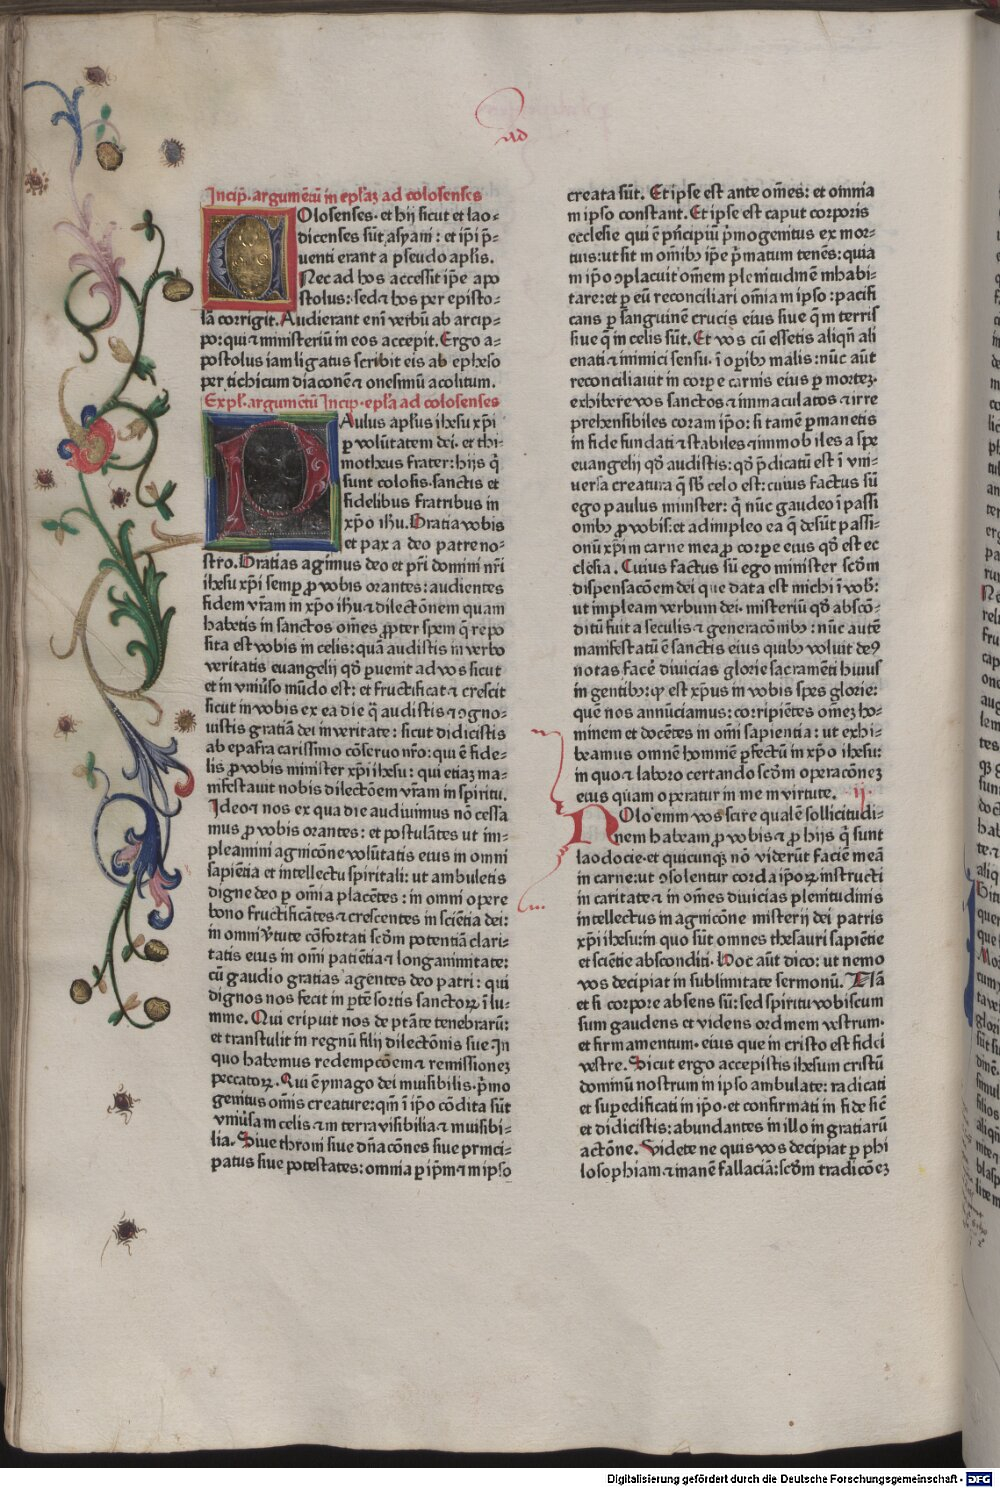 ad
Incip̄. argumētū in ep̄laʒ ad colosenses
COlosenses. et hij sicut et lao⸗
dicenses sūt asyani : et ip̄i p̄⸗
uenti erant a pseudo apl̄is.
Nec ad hos accessit ip̄e apo
stolus: sed ⁊ hos per episto⸗
lā corrigit. Audierant enī verbū ab arcip⸗
po: qui ⁊ ministeriū in eos accepit. Ergo a⸗
postolus iam ligatus scribit eis ab epheso
per tichicum diaconē ⁊ onesimū acolitum.
Expl̄. argumētū Incip. epl̄a ad colosenses
PAulus apl̄us ihesu xp̄i
ꝑ volūtatem dei. et thi⸗
motheus frater: hijs q̄
sunt colosis. sanctis et
fidelibus fratribus in
xp̄o ih̄u. Gratia vobis
et pax a deo patre no⸗
stro. Gratias agimus deo et pr̄i domini nr̄i
ihesu xp̄i semꝑ ꝓ vobis orantes: audientes
fidem vr̄am in xp̄o ih̄u ⁊ dilectōnem quam
habetis in sanctos om̄es ꝓpter spem q̄ repo
sita est vobis in celis: quā audistis in verbo
veritatis euangelij qd̄ ꝑuenit ad vos sicut
et in vniu̓so mūdo est: et fructificat ⁊ crescit
sicut in vobis ex ea die q̄ audistis ⁊ ꝯgno⸗
uistis gratiā dei in veritate: sicut didicistis
ab epafra carissimo cōseruo nr̄o: qui ē fide⸗
lis ꝓ vobis minister xp̄i ihesu: qui etiaʒ ma⸗
nifestauit nobis dilectōem vr̄am in spiritu.
Ideo ⁊ nos ex qua die audiuimus nō cessa
mus ꝓ vobis orantes: et postulātes ut im⸗
pleamini agnicōne volūtatis eius in omni
sapiētia et intellectu spiritali: ut ambuletis
digne deo ꝑ om̄ia placētes: in omni opere
bono fructificātes ⁊ crescentes in sciētia dei:
in omni v̓tute cōfortati scd̄m potentiā clari⸗
tatis eius in om̄i patiētia ⁊ longanimitate:
cū gaudio gratias agentes deo patri: qui
dignos nos fecit in ꝑtē sortis sanctoꝝ ī lu⸗
mine. Qui eripuit nos de ptāte tenebrarū:
et transtulit in regnū filij dilectōnis sue. In
quo habemus redempcōem ⁊ remissioneʒ
peccatoꝝ. Qui ē ymago dei inuisibilis. p̄mo
genitus om̄is creature: qm̄ ī ip̄o cōdita sūt
vniu̓sa in celis ⁊ in terra visibilia ⁊ inuisibi⸗
lia. Siue throni siue dn̄acōnes siue princi⸗
patus siue potestates: omnia ꝑ ip̄m ⁊ in ip̄so
creata sūt. Et ipse est ante om̄es: et omnia
in ipso constant. Et ipse est caput corporis
ecclesie qui ē pn̄cipiū p̄mogenitus ex mor⸗
tuis: ut sit in om̄ibꝫ ip̄e p̄matum tenēs: quia
in ip̄o ꝯplacuit om̄em plenitudinē inhabi⸗
tare: et ꝑ eū reconciliari om̄ia in ipso: pacifi
cans ꝑ sanguinē crucis eius siue q̄ in terris
siue q̄ in celis sūt. Et vos cū essetis aliqn̄ ali
enati ⁊ inimici sensu. ī oꝑibꝫ malis: nūc aūt
reconciliauit in corꝑe carnis eius ꝑ morteʒ.
exhibere vos sanctos ⁊ immaculatos ⁊ irre
prehensibiles coram ip̄o: si tamē ꝑmanetis
in fide fundati ⁊ stabiles ⁊ immobiles a spe
euangelij qd̄ audistis: qd̄ p̄dicatū est ī vni⸗
uersa creatura q̄ sb̄ celo est: cuius factus sū
ego paulus minister: q̄ nūc gaudeo ī passi
onibꝫ ꝓ vobis: et adimpleo ea q̄ desūt passi⸗
onū xp̄i in carne mea ꝓ corꝑe eius qd̄ est ec
clesia. Cuius factus sū ego minister scd̄m
dispensacōem dei que data est michi ī vob̄:
ut impleam verbum dei. misteriū qd̄ abscō⸗
ditū fuit a seculis ⁊ generacōnibꝫ: nūc autē
manifestatū ē sanctis eius quibꝫ voluit deꝰ
notas facē diuicias glorie sacramēti huius
in gentibꝫ: qꝫ est xp̄us in vobis spes glorie:
quē nos annūciamus: corripiētes om̄eʒ ho⸗
minem et docētes in om̄i sapientia: ut exhi⸗
beamus omnē hominē ꝑfectū in xp̄o ihesu:
in quo ⁊ laboro certando scd̄m operacōneʒ
eius quam operatur in me in virtute. ij.
NOlo enim vos scire qualē sollicitudi⸗
nem habeam ꝓ vobis ⁊ ꝓ hijs q̄ sunt
laodocie. et quicunqꝫ nō viderūt faciē meā
in carne: ut ꝯsolentur corda ip̄oꝝ instructi
in caritate ⁊ in om̄es diuicias plenitudinis
intellectus in agnicōne misterij dei patris
xp̄i ihesu: in quo sūt omnes thesauri sapiētie
et sciētie absconditi. Hoc aūt dico: ut nemo
vos decipiat in sublimitate sermonū. Nā
et si corpore absens sū: sed spiritu vobiscum
sum gaudens et videns ordinem vestrum.
et firmamentum. eius que in cristo est fidei
vestre. Sicut ergo accepistis ihesum cristū
dominū nostrum in ipso ambulate: radicati
et suꝑedificati in ip̄o. et confirmati in fide sic̄
et didicistis: abundantes in illo in gratiarū
actōne. Videte ne quis vos decipiat ꝑ phi
losophiam ⁊ inanē fallaciā: scd̄m tradicōeʒ
Digitalisierung gefördert durch die Deutsche Forschungsgemeinschaft - DFG